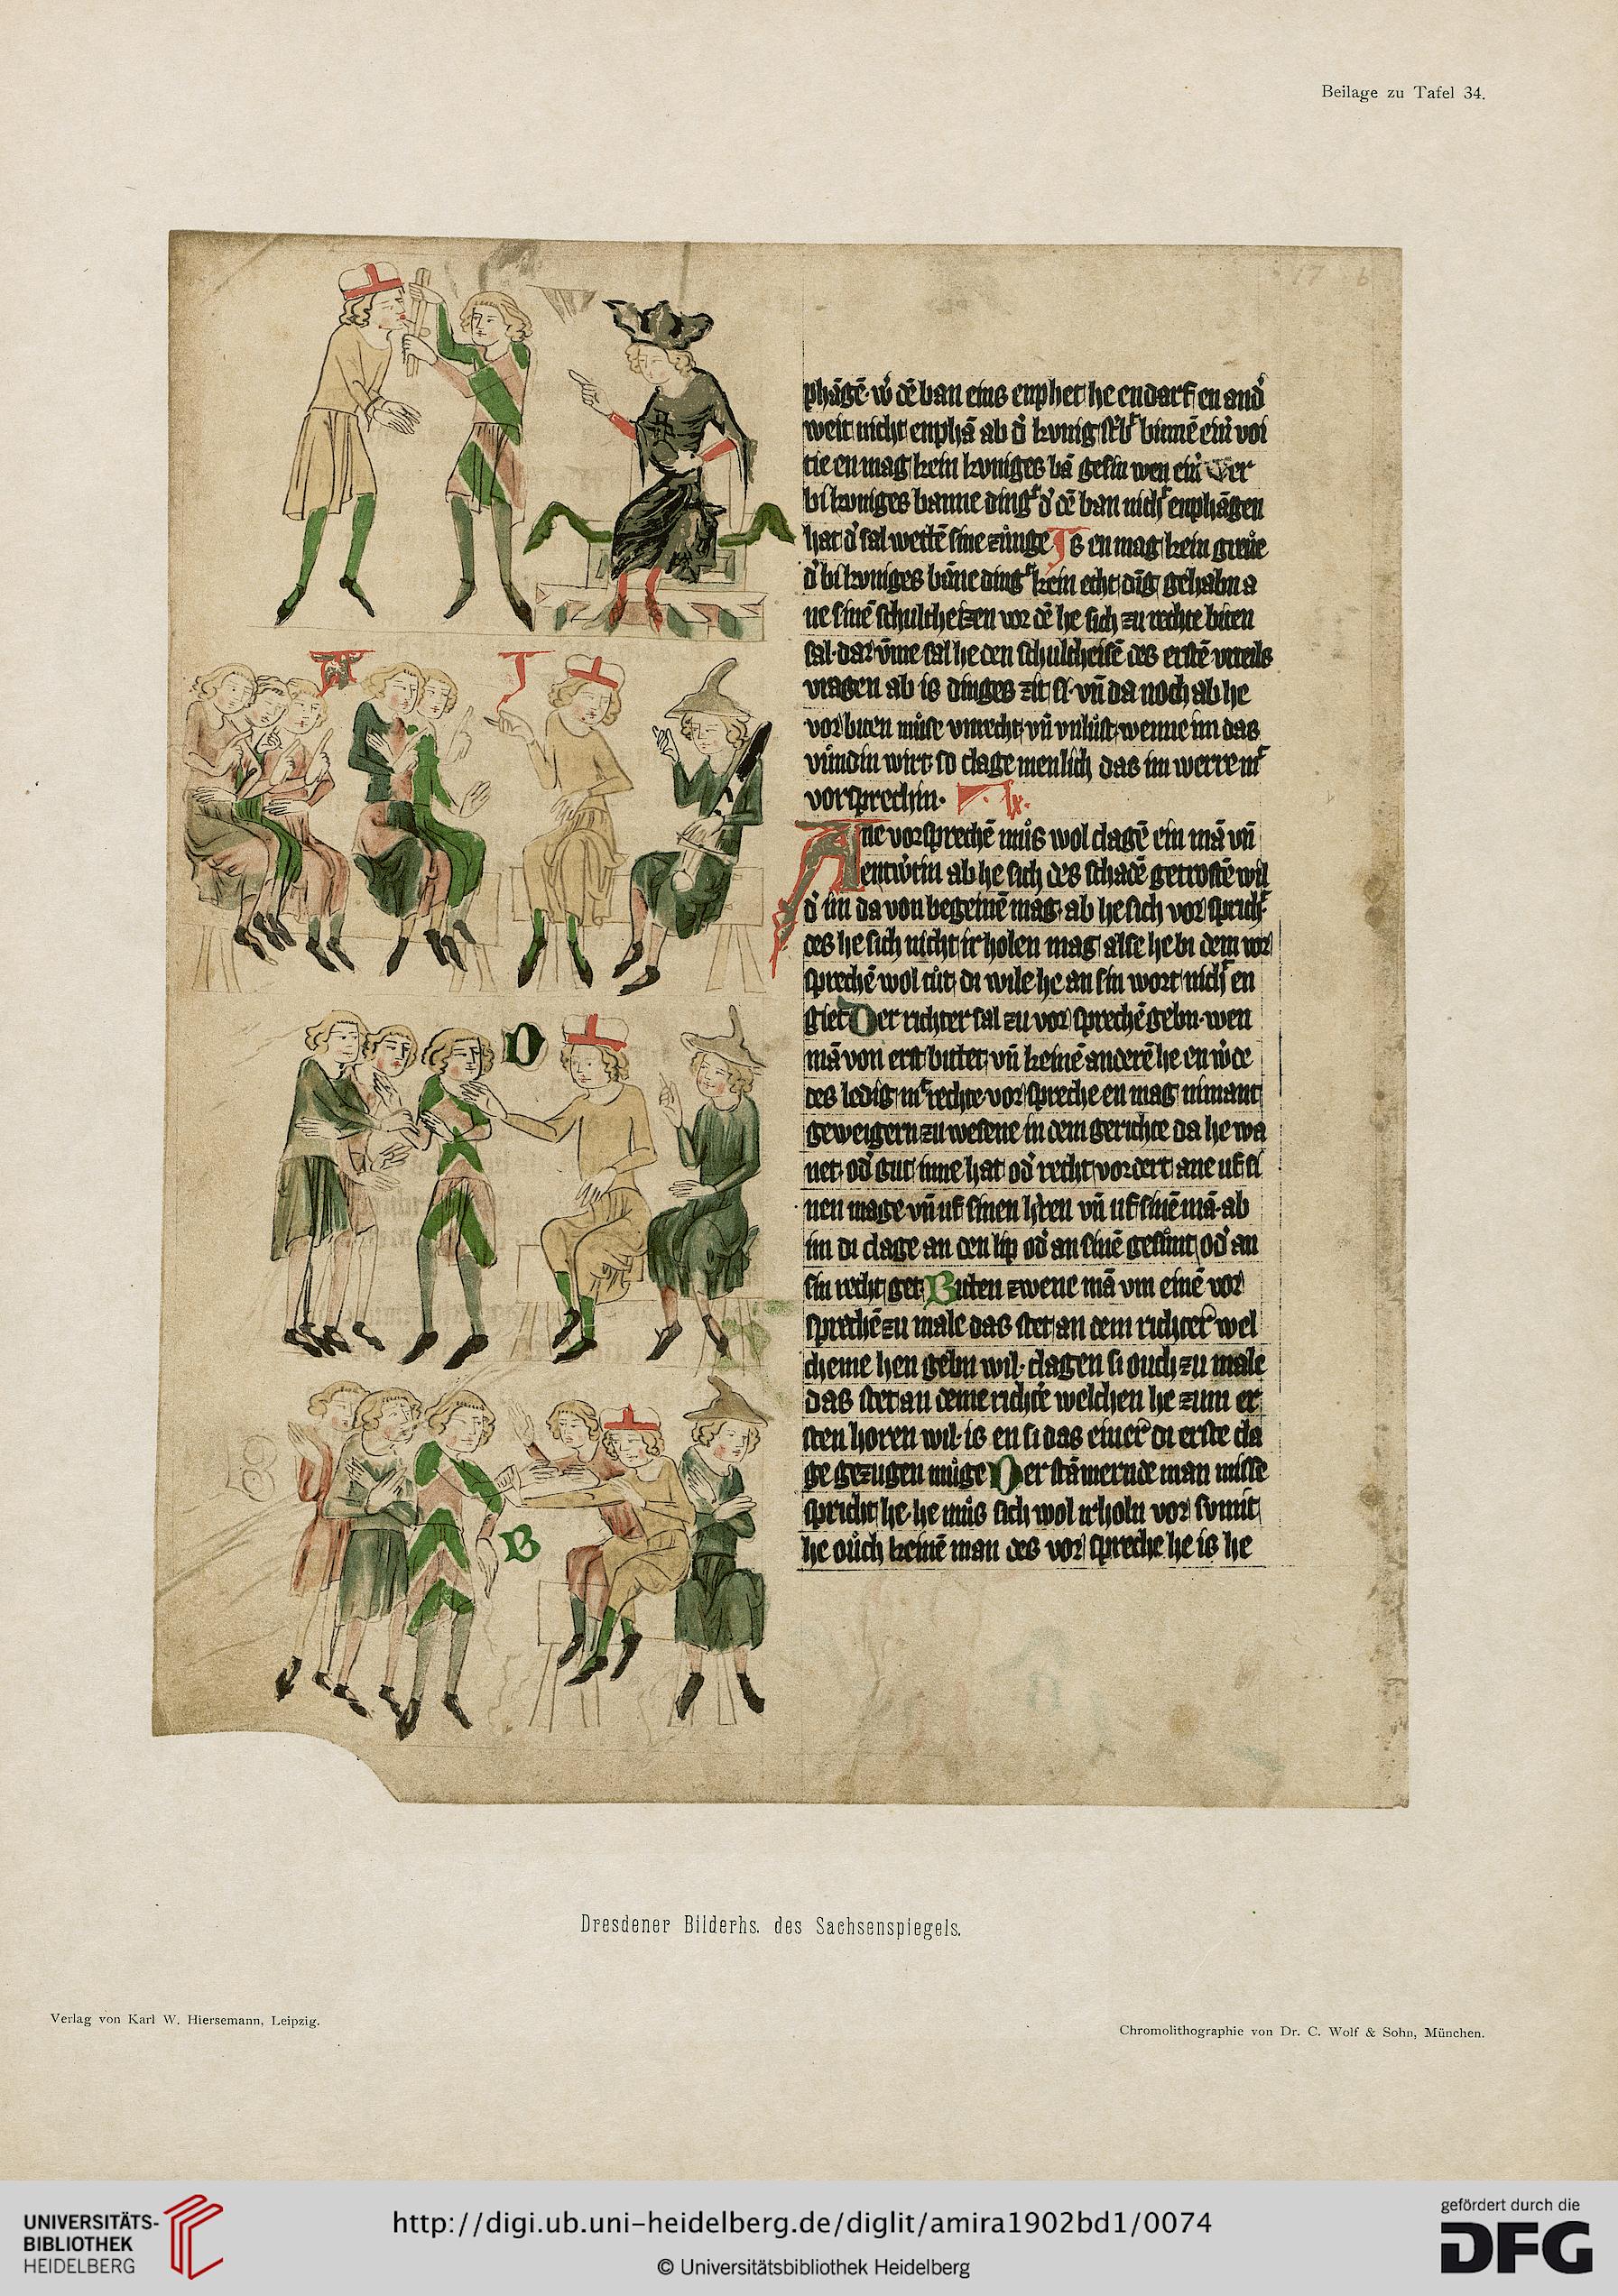 Beilage zu Tafel 34.
17 b
phāgē· w' dē ban eins enphet he en darf en and'
weit nicht enphā ab d' kvnig stbt binnē ein' voi
tie en mag kein kvniges bā gesin wen ein Wer
bi kvniges banne dingt d' dē ban nicht enphāgen
hat d' sal wettē sine zunge Is en mag kein greue
d' bi kvniges bāne dingt kein echt dīg gehabn a
ne sinē schultheizen vor dē he sich zu rechte biten
sal· dar vme sal he den schultheisē des erstē vrteils
vragen ab is dinges zit si· vn̄ da noch ab he
vorbiten muse vnrecht vn̄ vnlust· wenne im das
vundin wirt so clage menlich das im werre mt
vorsprechin· lx.
Ane vorsprechē mus wol clagē ein mā vn̄
entw'tin ab he sich des schadē getrostē wil
d' im da von begeinē mag· ab he sich vorspricht·
des he sich nicht irholen mag alse he bi dem vor
sprechē wol tut· di wile he an sin wort nicht en
giet Der richter sal zu vorsprechē gebn· wen
mā von erst bitet· vn̄ keinē anderē he en w'de
des ledig mt rechte vorspreche en mag nimant
geweigern zu wesene in dem gerichte da he wo
net· od' gut inne hat od' recht vordert ane uf si
nen mage vn̄ uf sinen h'ren vn̄ uf sinē mā· ab
im di clage an den lip od' an sinē gesunt od' an
sin recht get· Biten zwene mā vm einē vor
sprechē zu male das stet an dem richter wel
cheme hen gebn wil· clagen si ouch zu male
das stet an deme richte welchen he zum er
sten horen wil· is en si das einer di erste cla
ge gezugen muge Der stāmernde man misse
spricht he· he mus sich wol irholn vorsvmit
he ouch keinē man des vorspreche he is he
A
I
D
B
B
Dresdener Bilderhs. des Sachsenspiegels.
Verlag von Karl W. Hiersemann, Leipzig.
Chromolithographie von Dr. C. Wolf & Sohn, München.
UNIVERSITÄTS-
BIBLIOTHEK
HEIDELBERG
http://digi.ub.uni-heidelberg.de/diglit/amira1902bd1/0074
© Universitätsbibliothek Heidelberg
gefördert durch die
DFG